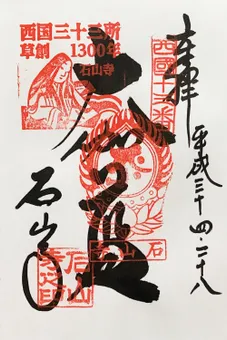 奉拝
平成三十四・二十八
西国三十三所
草創 1300年
石山寺
西國十三番
大伽藍
石山寺
石山寺